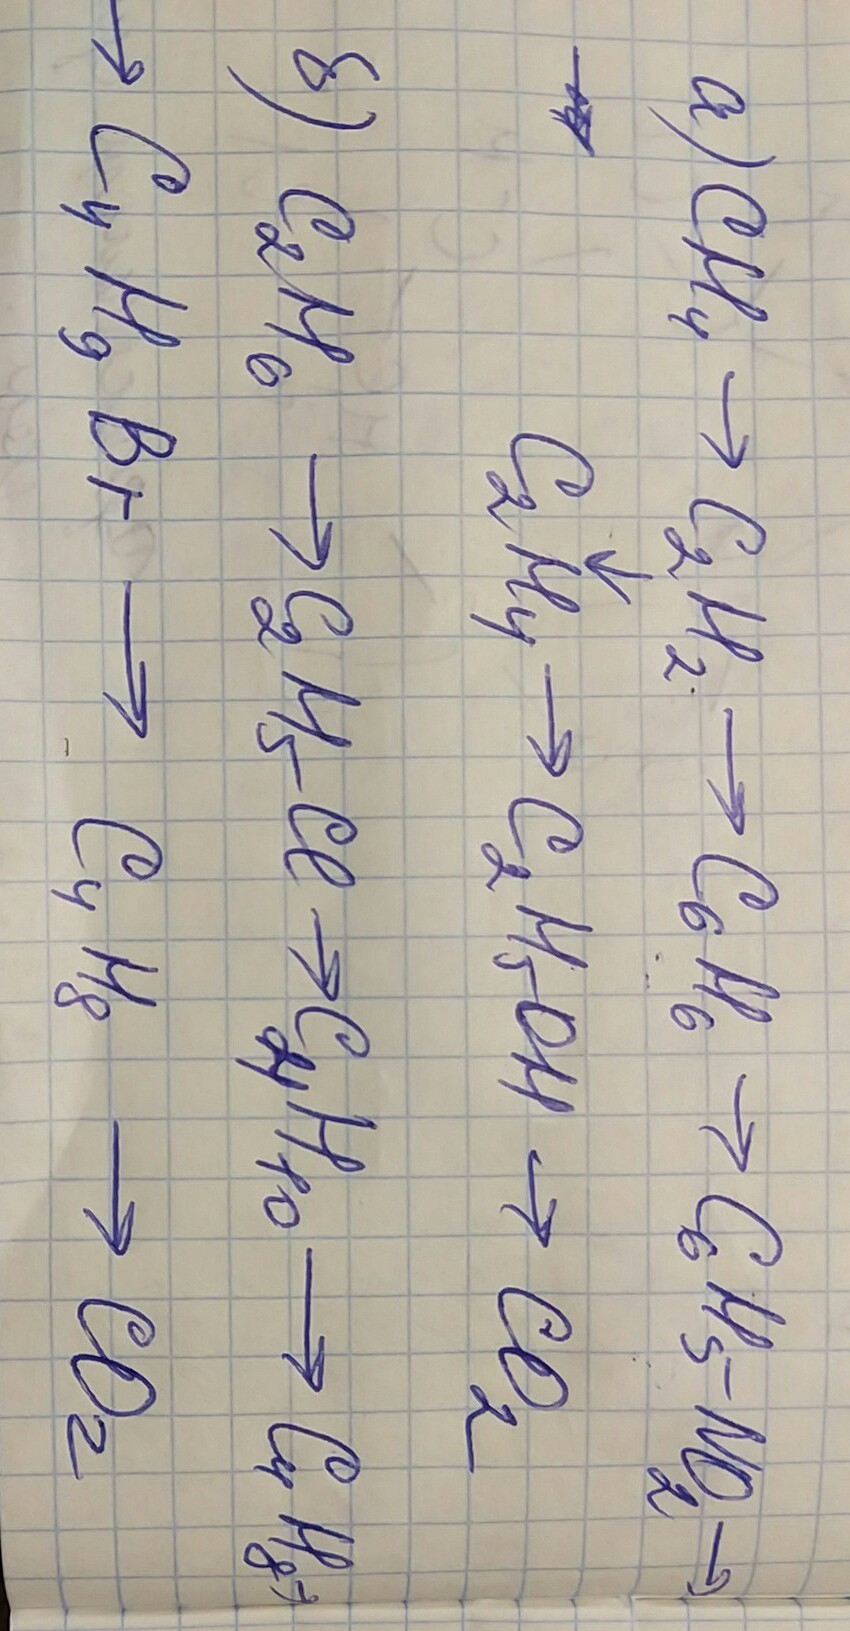 а) CH₄ → C₂H₂ → C₆H₆ → C₆H₅-NO₂ →
↓
C₂H₄ → C₂H₅OH → CO₂
б) C₂H₆ → C₂H₅Cl → C₄H₁₀ → C₄H₈→
→ C₄H₉Br → C₄H₈ → CO₂